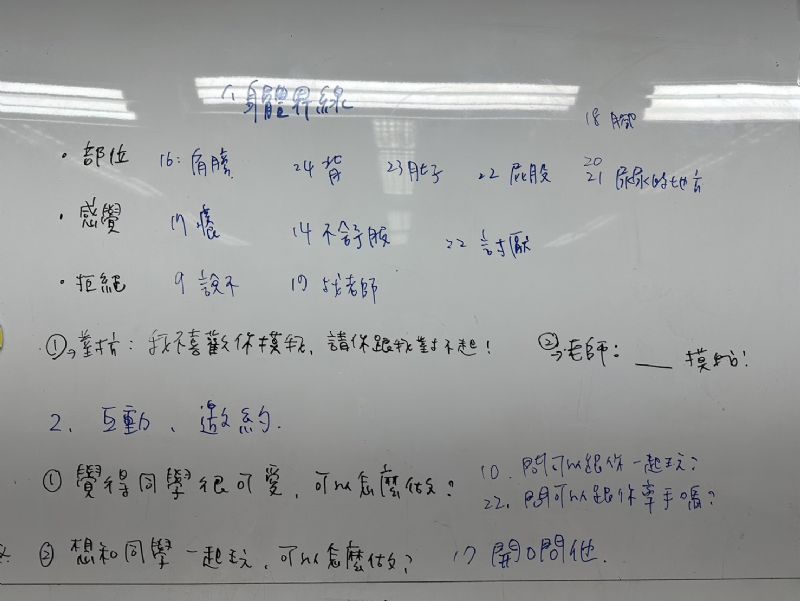 1、身體界線
18 腳
• 部位 16: 肩膀 24 背 23 肚子 22 屁股 20 21 尿尿的地方
• 感覺 17 癢 14 不舒服 22 討厭
• 拒絕 9 說不 19 找老師
①→對抗：我不喜歡你摸我，請你跟我對不起！ ②→老師：__ 摸我！
2、互動、邀約.
① 覺得同學很可愛，可以怎麼做？ 10. 問可以跟你一起玩？
22. 問可以跟你牽手嗎？
② 想和同學一起玩，可以怎麼做？ 17 開口問他.